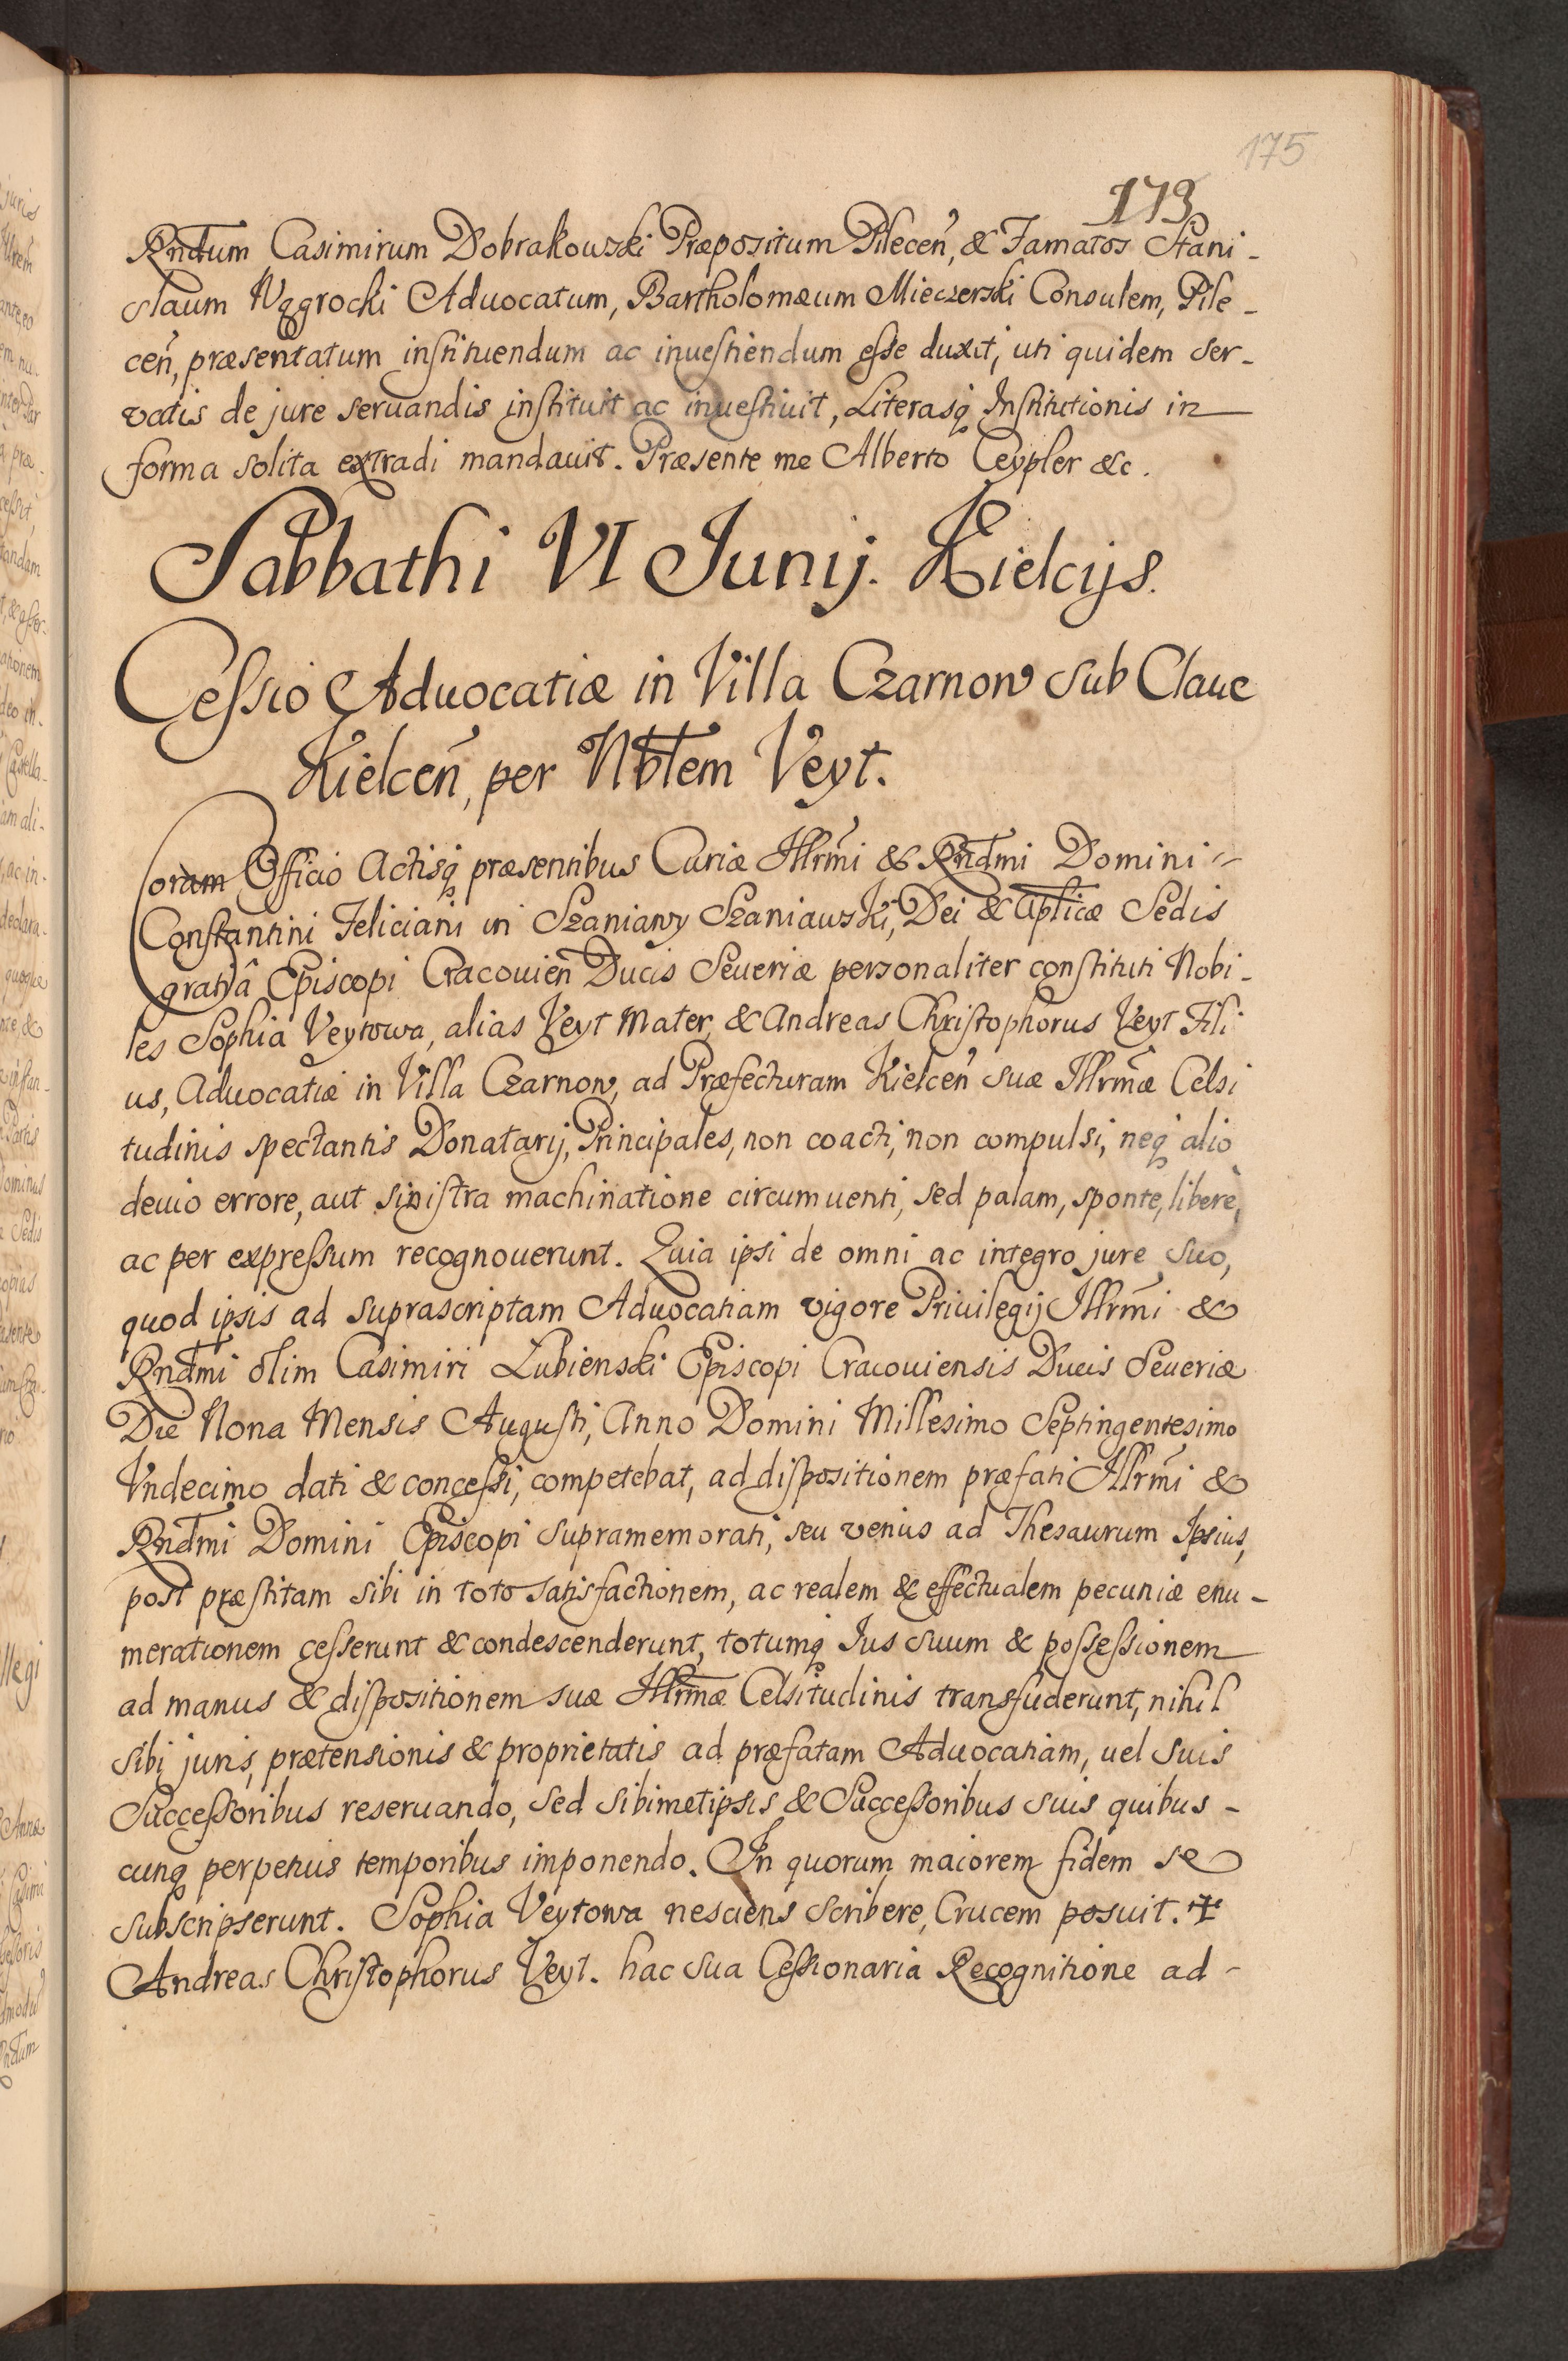 175
173
Rndum Casimirum Dobrakowski Præpositum Pilecen̄, & Famatos Stani-
slaum Wągrocki Aduocatum, Bartholomæum Mieczerski Consulem, Pile-
cen̄, præsentatum instituendum ac inuestiendum esse duxit, uti quidem ser-
vatis de jure seruandis instituit ac inuestiuit, Literasq Institutionis in
forma solita extradi mandauit. Præsente me Alberto Ceypler &c.
Sabbathi VI Junij. Kielcijs.
Cessio Aduocatiæ in Villa Czarnow sub Claue
Kielcen̄, per Nbtem Veyt.
Coram Officio Actisq præsentibus Curiæ Illrm̄i & Rndmi Domini
Constantini Feliciani in Szaniawy Szaniawski, Dei & Aplicæ Sedis
gratiâ Episcopi Cracouien̄ Ducis Seueriæ personaliter constituti Nobi-
les Sophia Veytowa, alias Veyt Mater, & Andreas Christophorus Veyt Fili
us, Aduocatiæ in Villa Czarnow, ad Præfecturam Kielcen̄ suæ Illrm̄æ Celsi
tudinis spectantis Donatarij, Principales, non coacti, non compulsi, neq alio
deuio errore, aut sinistra machinatione circumuenti, sed palam, sponte, liberè,
ac per expressum recognouerunt. Quia ipsi de omni ac integro jure suo,
quod ipsis ad suprascriptam Aduocatiam vigore Priuilegij Illrm̄i &
Rndmi olim Casimiri Łubienski Episcopi Cracouiensis Ducis Seueriæ
Die Nona Mensis Augusti, Anno Domini Millesimo Septingentesimo
Vndecimo dati & concessi, competebat, ad dispositionem præfati Illrm̄i &
Rndmi Domini Episcopi supramemorati, seu verius ad Thesaurum Ipsius,
post præstitam sibi in toto satisfactionem, ac realem & effectualem pecuniæ enu-
merationem cesserunt & condescenderunt, totumq Ius suum & possessionem
ad manus & dispositionem suæ Illrm̄æ Celsitudinis transfuderunt, nihil
sibi juris, prætensionis & proprietatis ad præfatam Aduocatiam, uel suis
Successoribus reseruando, sed sibimetipsis & Successoribus suis quibus-
cunq perpetuis temporibus imponendo. In quorum maiorem fidem se
subscripserunt. Sophia Veytowa nesciens scribere, Crucem posuit. ✝
Andreas Christophorus Veyt. hac sua Cessionaria Recognitione ad-